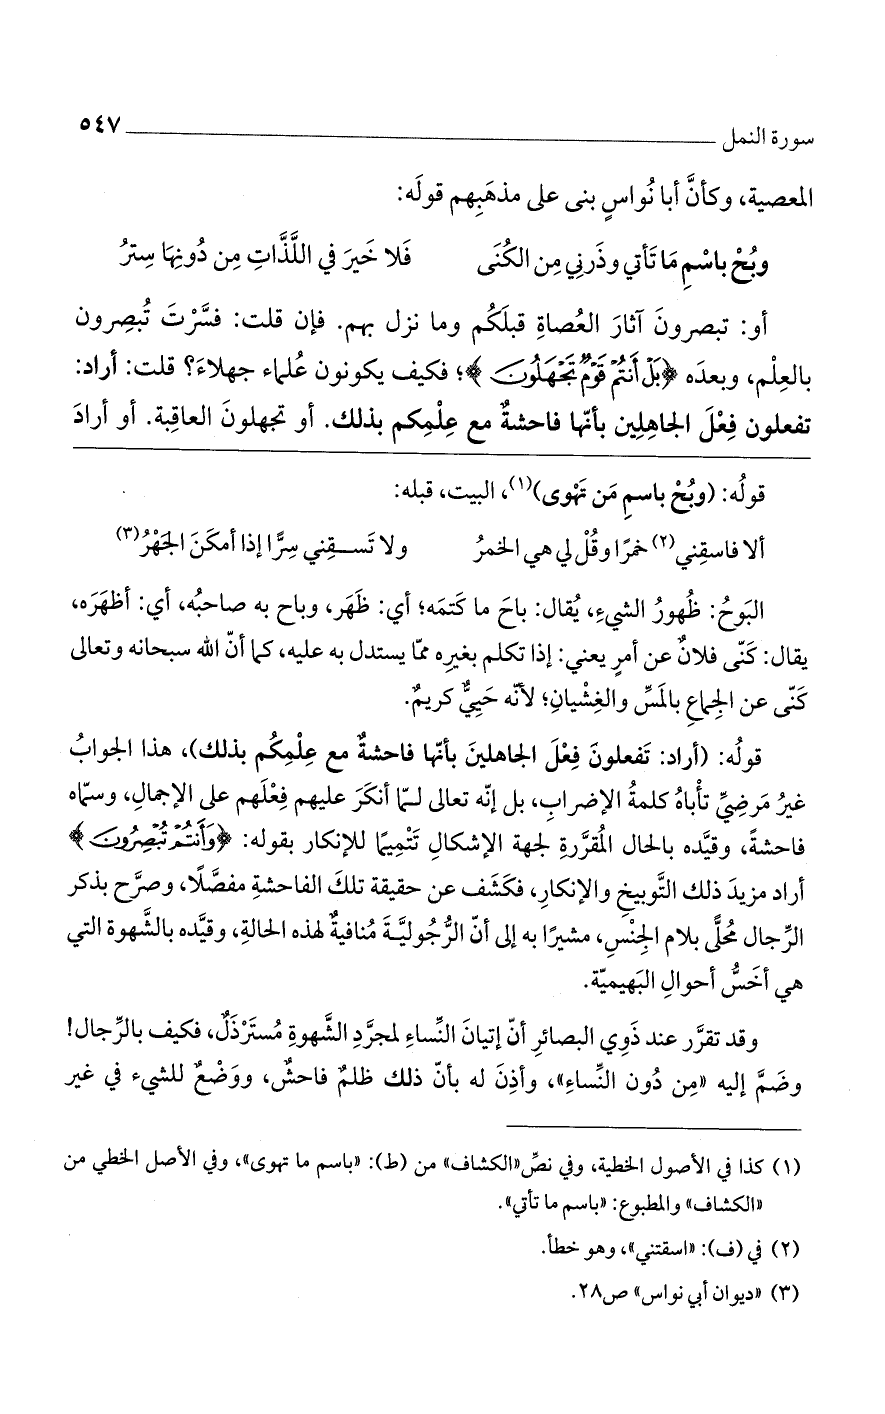 سورة النمل ٥٤٧
المعصية، وكأنَّ أبا نُواسٍ بنى على مذهَبِهم قولَه:
وبُحْ باسْمِ مَا تَأتي وذَرنِي مِن الكُنَى فَلا خَيرَ في اللَّذَّاتِ مِن دُونِهَا سِترُ
أو: تبصرونَ آثارَ العُصاةِ قبلَكُم وما نزل بهم. فإن قلت: فسَّرْتَ تُبصِرون
بالعِلْم، وبعدَه ﴿بَلْ أَنتُمْ قَوْمٌ تَجْهَلُونَ﴾؛ فكيف يكونون عُلماء جهلاءَ؟ قلت: أراد:
تفعلون فِعْلَ الجاهِلِين بأنّها فاحشةٌ مع عِلْمِكم بذلك. أو تجهلونَ العاقِبة. أو أرادَ
قولُه: (وبُحْ باسمِ مَن تَهْوى)(١)، البيت، قبله:
ألا فاسقِني(٢) خمرًا وقُلْ لي هي الخمرُ ولا تَسـقِني سِرًّا إذا أمكَنَ الجَهْرُ(٣)
البَوحُ: ظُهورُ الشيءِ، يُقال: باحَ ما كَتمَه؛ أي: ظَهَر، وباح به صاحبُه، أي: أظهَرَه،
يقال: كَنّى فلانٌ عن أمرٍ يعني: إذا تكلم بغيرِه ممّا يستدل به عليه، كما أنّ الله سبحانه وتعالى
كَنّى عن الجِماعِ بالمَسِّ والغِشْيانِ؛ لأنّه حَيِيٌّ كريمٌ.
قولُه: (أراد: تَفعلونَ فِعْلَ الجاهلينَ بأنّها فاحشةٌ مع عِلْمِكُم بذلك)، هذا الجوابُ
غيرُ مَرضِيٍّ تأباهُ كلمةُ الإضرابِ، بل إنّه تعالى لـمّا أنكَرَ عليهم فِعْلَهم على الإجمالِ، وسمّاه
فاحشةً، وقيَّده بالحال المُقرَّرةِ لجهة الإشكالِ تَتْمِيمًا للإنكار بقوله: ﴿وَأَنتُمْ تُبْصِرُونَ﴾
أراد مزيدَ ذلك التَّوبيخِ والإنكارِ، فكَشَف عن حقيقة تلكَ الفاحشةِ مفصَّلًا، وصرَّح بذكر
الرِّجال مُحلًّى بلام الجِنْسِ، مشيرًا به إلى أنّ الرُّجُوليَّـةَ مُنافيةٌ لهذه الحالةِ، وقيَّده بالشَّهوة التي
هي أخَسُّ أحوالِ البَهيميّة.
وقد تقرَّر عند ذَوِي البصائرِ أنّ إتيانَ النِّساءِ لمجرَّدِ الشَّهوةِ مُستَرْذَلٌ، فكيف بالرِّجال!
وضَمَّ إليه «مِن دُون النِّساءِ»، وأذِنَ له بأنّ ذلك ظلمٌ فاحشٌ، ووَضْعٌ للشيء في غير
(١) كذا في الأصول الخطية، وفي نصِّ «الكشاف» من (ط): «باسم ما تهوى»، وفي الأصل الخطي من
«الكشاف» والمطبوع: «باسم ما تأتي».
(٢) في (ف): «اسقتني»، وهو خطأ.
(٣) «ديوان أبي نواس» ص٢٨.